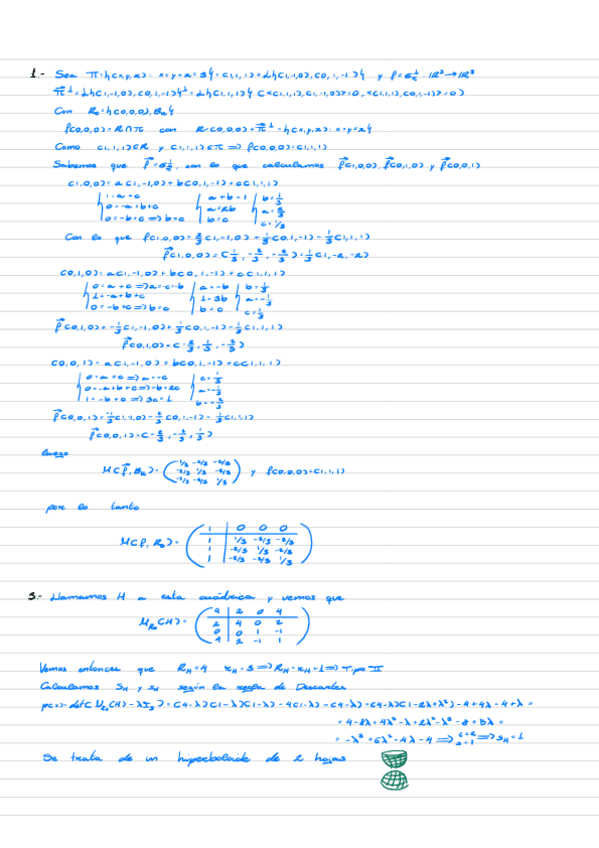 1.- Sea π={(x,y,z): x+y+z=3}=(1,1,1)+L{(1,-1,0),(0,1,-1)} y f=σ_π^⊥: ℝ³→ℝ³
π⃗^⊥=L{(1,-1,0),(0,1,-1)}^⊥=L{(1,1,1)} (<(1,1,1),(1,-1,0)>=0, <(1,1,1),(0,1,-1)>=0)
Con R₀={(0,0,0),Bu}
f(0,0,0)=R∩π con R=(0,0,0)+π⃗^⊥={(x,y,z): x=y=z}
Como (1,1,1)∈R y (1,1,1)∈π ⇒ f(0,0,0)=(1,1,1)
Sabemos que f⃗=σ, con lo que calculamos f⃗(1,0,0), f⃗(0,1,0) y f⃗(0,0,1)
(1,0,0)=a(1,-1,0)+b(0,1,-1)+c(1,1,1)
1=a+c a+b=1 b=1/3
0=-a+b+c a=2b a=2/3
0=-b+c⇒b=c b=c c=1/3
Con lo que f(1,0,0)=2/3(1,-1,0)+1/3(0,1,-1)-1/3(1,1,1)
f⃗(1,0,0)=(1/3,-2/3,-2/3)=1/3(1,-2,-2)
(0,1,0)=a(1,-1,0)+b(0,1,-1)+c(1,1,1)
0=a+c⇒a=-c=-b a=-b b=1/3
1=-a+b+c 1=3b a=-1/3
0=-b+c⇒b=c b=c c=1/3
f⃗(0,1,0)=-1/3(1,-1,0)+1/3(0,1,-1)-1/3(1,1,1)
f⃗(0,1,0)=(-2/3,1/3,-2/3)
(0,0,1)=a(1,-1,0)+b(0,1,-1)+c(1,1,1)
0=a+c⇒a=-c c=1/3
0=-a+b+c⇒-b=2c a=-1/3
1=-b+c⇒3c=1 b=-2/3
f⃗(0,0,1)=-1/3(1,-1,0)-2/3(0,1,-1)-1/3(1,1,1)
f⃗(0,0,1)=(-2/3,-2/3,1/3)
luego
M(f⃗,Bu)= 1/3 -2/3 -2/3 y f(0,0,0)=(1,1,1)
-2/3 1/3 -2/3
-2/3 -2/3 1/3
por lo tanto
1 0 0 0
M(f,R₀)= 1 1/3 -2/3 -2/3
1 -2/3 1/3 -2/3
1 -2/3 -2/3 1/3
3.- Llamamos H a esta cuádrica y vemos que
2 0 4
M_R₀(H)= 2 4 0 2
0 0 1 -1
4 2 -1 1
Vemos entonces que R_H=4 r_H=3⇒R_H-r_H=1⇒Tipo II
Calculamos S_H y s_H según la regla de Descartes
p(λ)=det(M_R₀(H)-λI₃)=(4-λ)(1-λ)(1-λ)-4(1-λ)-(4-λ)=(4-λ)(1-2λ+λ²)-4+4λ-4+λ=
=4-8λ+4λ²-λ+2λ²-λ³-8+5λ=
=-λ³+6λ²-4λ-4 ⇒ ⇒s_H=1
Se trata de un hiperboloide de 2 hojas